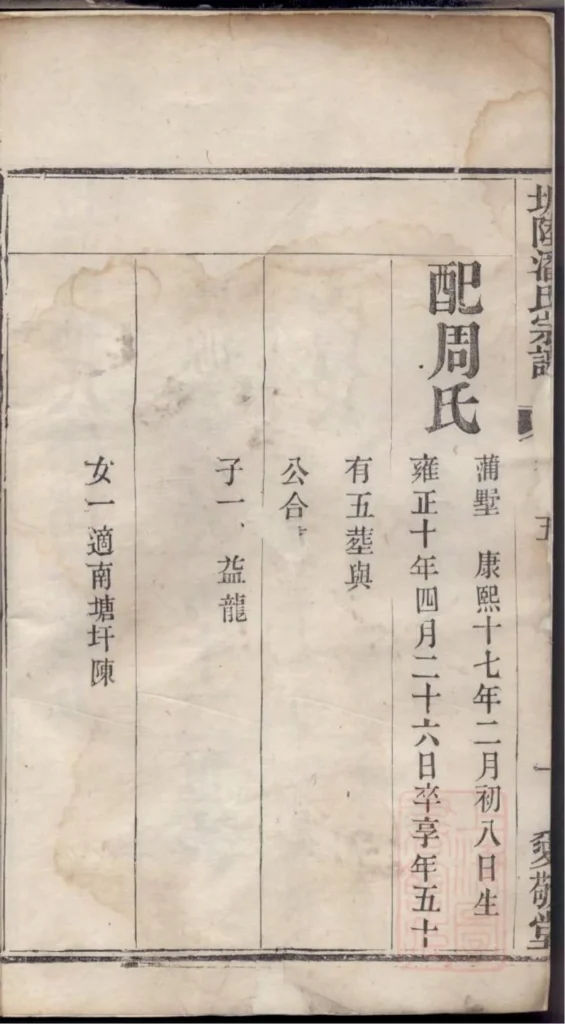 陸潘氏宗譜
五
一
愛敬堂
配周氏
蒲墅 康熙十七年二月初八日生
雍正十年四月二十六日卒享年五十
有五葬與
公合
子一、益龍
女一適南塘圩陳